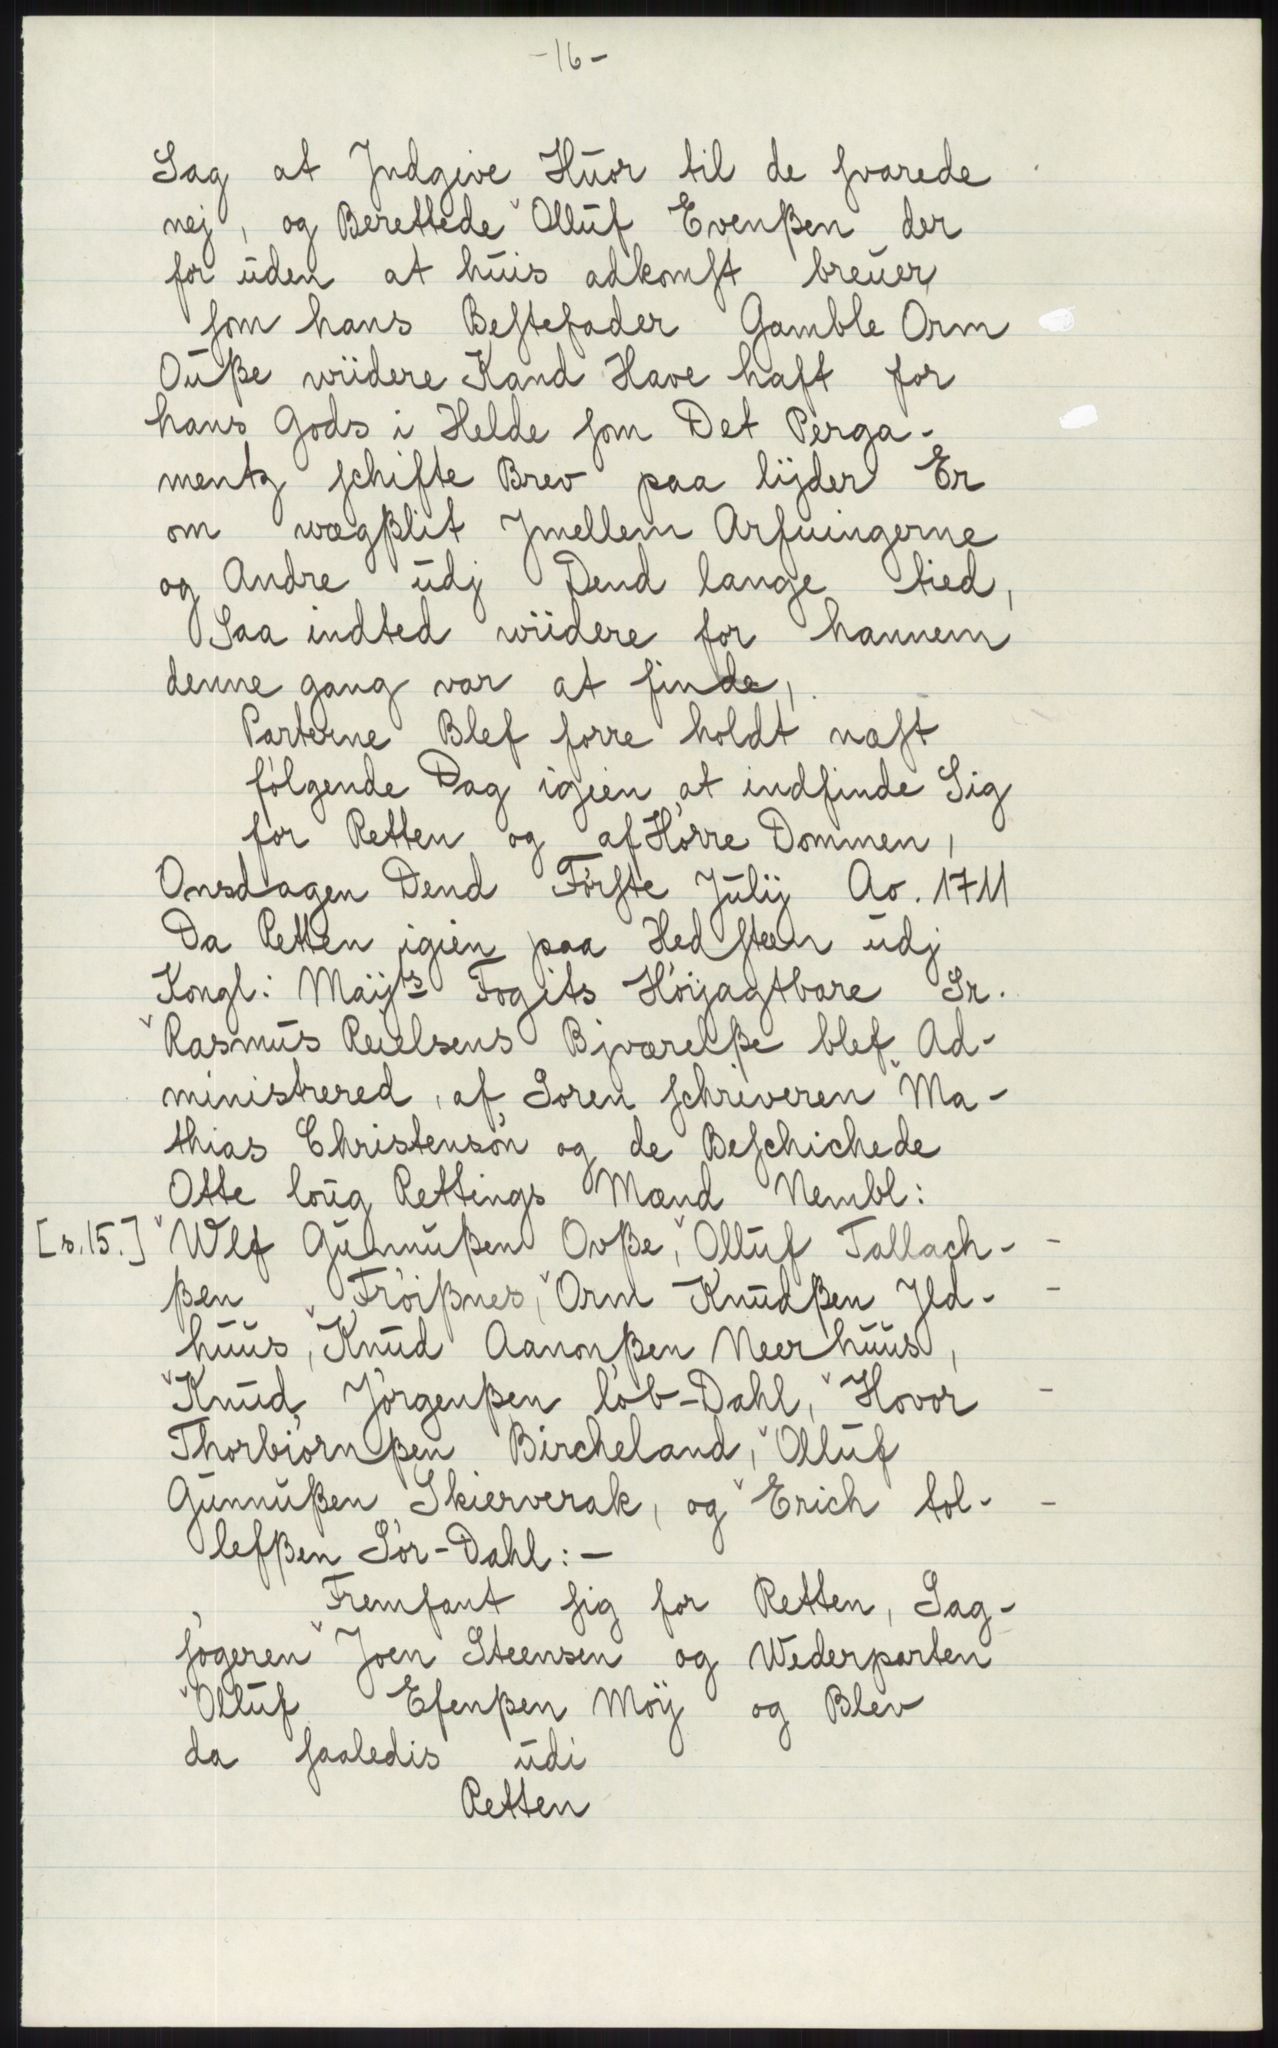 -16-
Sag at Jndgive Huor til de svarede
nej, og Berettede Olluf Evenßen der
for uden at huis adkomst breuer
som hans Bestefader Gamble Orm
Ouße wiidere Kand Have haft for
hans Gods i Helde som Det Perga-
mentz schifte Brev paa lijder Er
om wægßlit Jmellem Arfuingerne
og Andre udj Dend lange tied,
Saa indted wiidere for hannem
denne gang var at finde,
Parterne Blef forre holdt næst
følgende Dag igien at indfinde Sig
for Retten og afHørre Dommen,
Onsdagen Dend Første Julij Ao. 1711
Da Retten igien paa Hedsteen udj
Kongl: Maijts Fogits Høijagtbare Sr.
Rasmus Reielsens Bjværelße blef Ad-
ministrered, af Soren schriveren Ma-
thias Christensøn og de Beschichede
Otte loug Rettings Mænd Nembl:
[s.15.] Wlf Gunnußen Ovße, Olluf Tallach- -
ßen Frøißnes, Orm Knudßen Jld- -
huus, Knud Aanonßen Neerhuus,
Knud Jørgenßen løb-Dahl, Hovor -
Thorbiørnßen Bircheland, Olluf
Gunnußen Skierverak, og Erich tol- -
lefßen Sør-Dahl:-
Fremfant sig for Retten, Sag-
søgeren Joen Steensen og Wederparten
Olluf Efenßen Møij og Blev
da saaledis udi
Retten